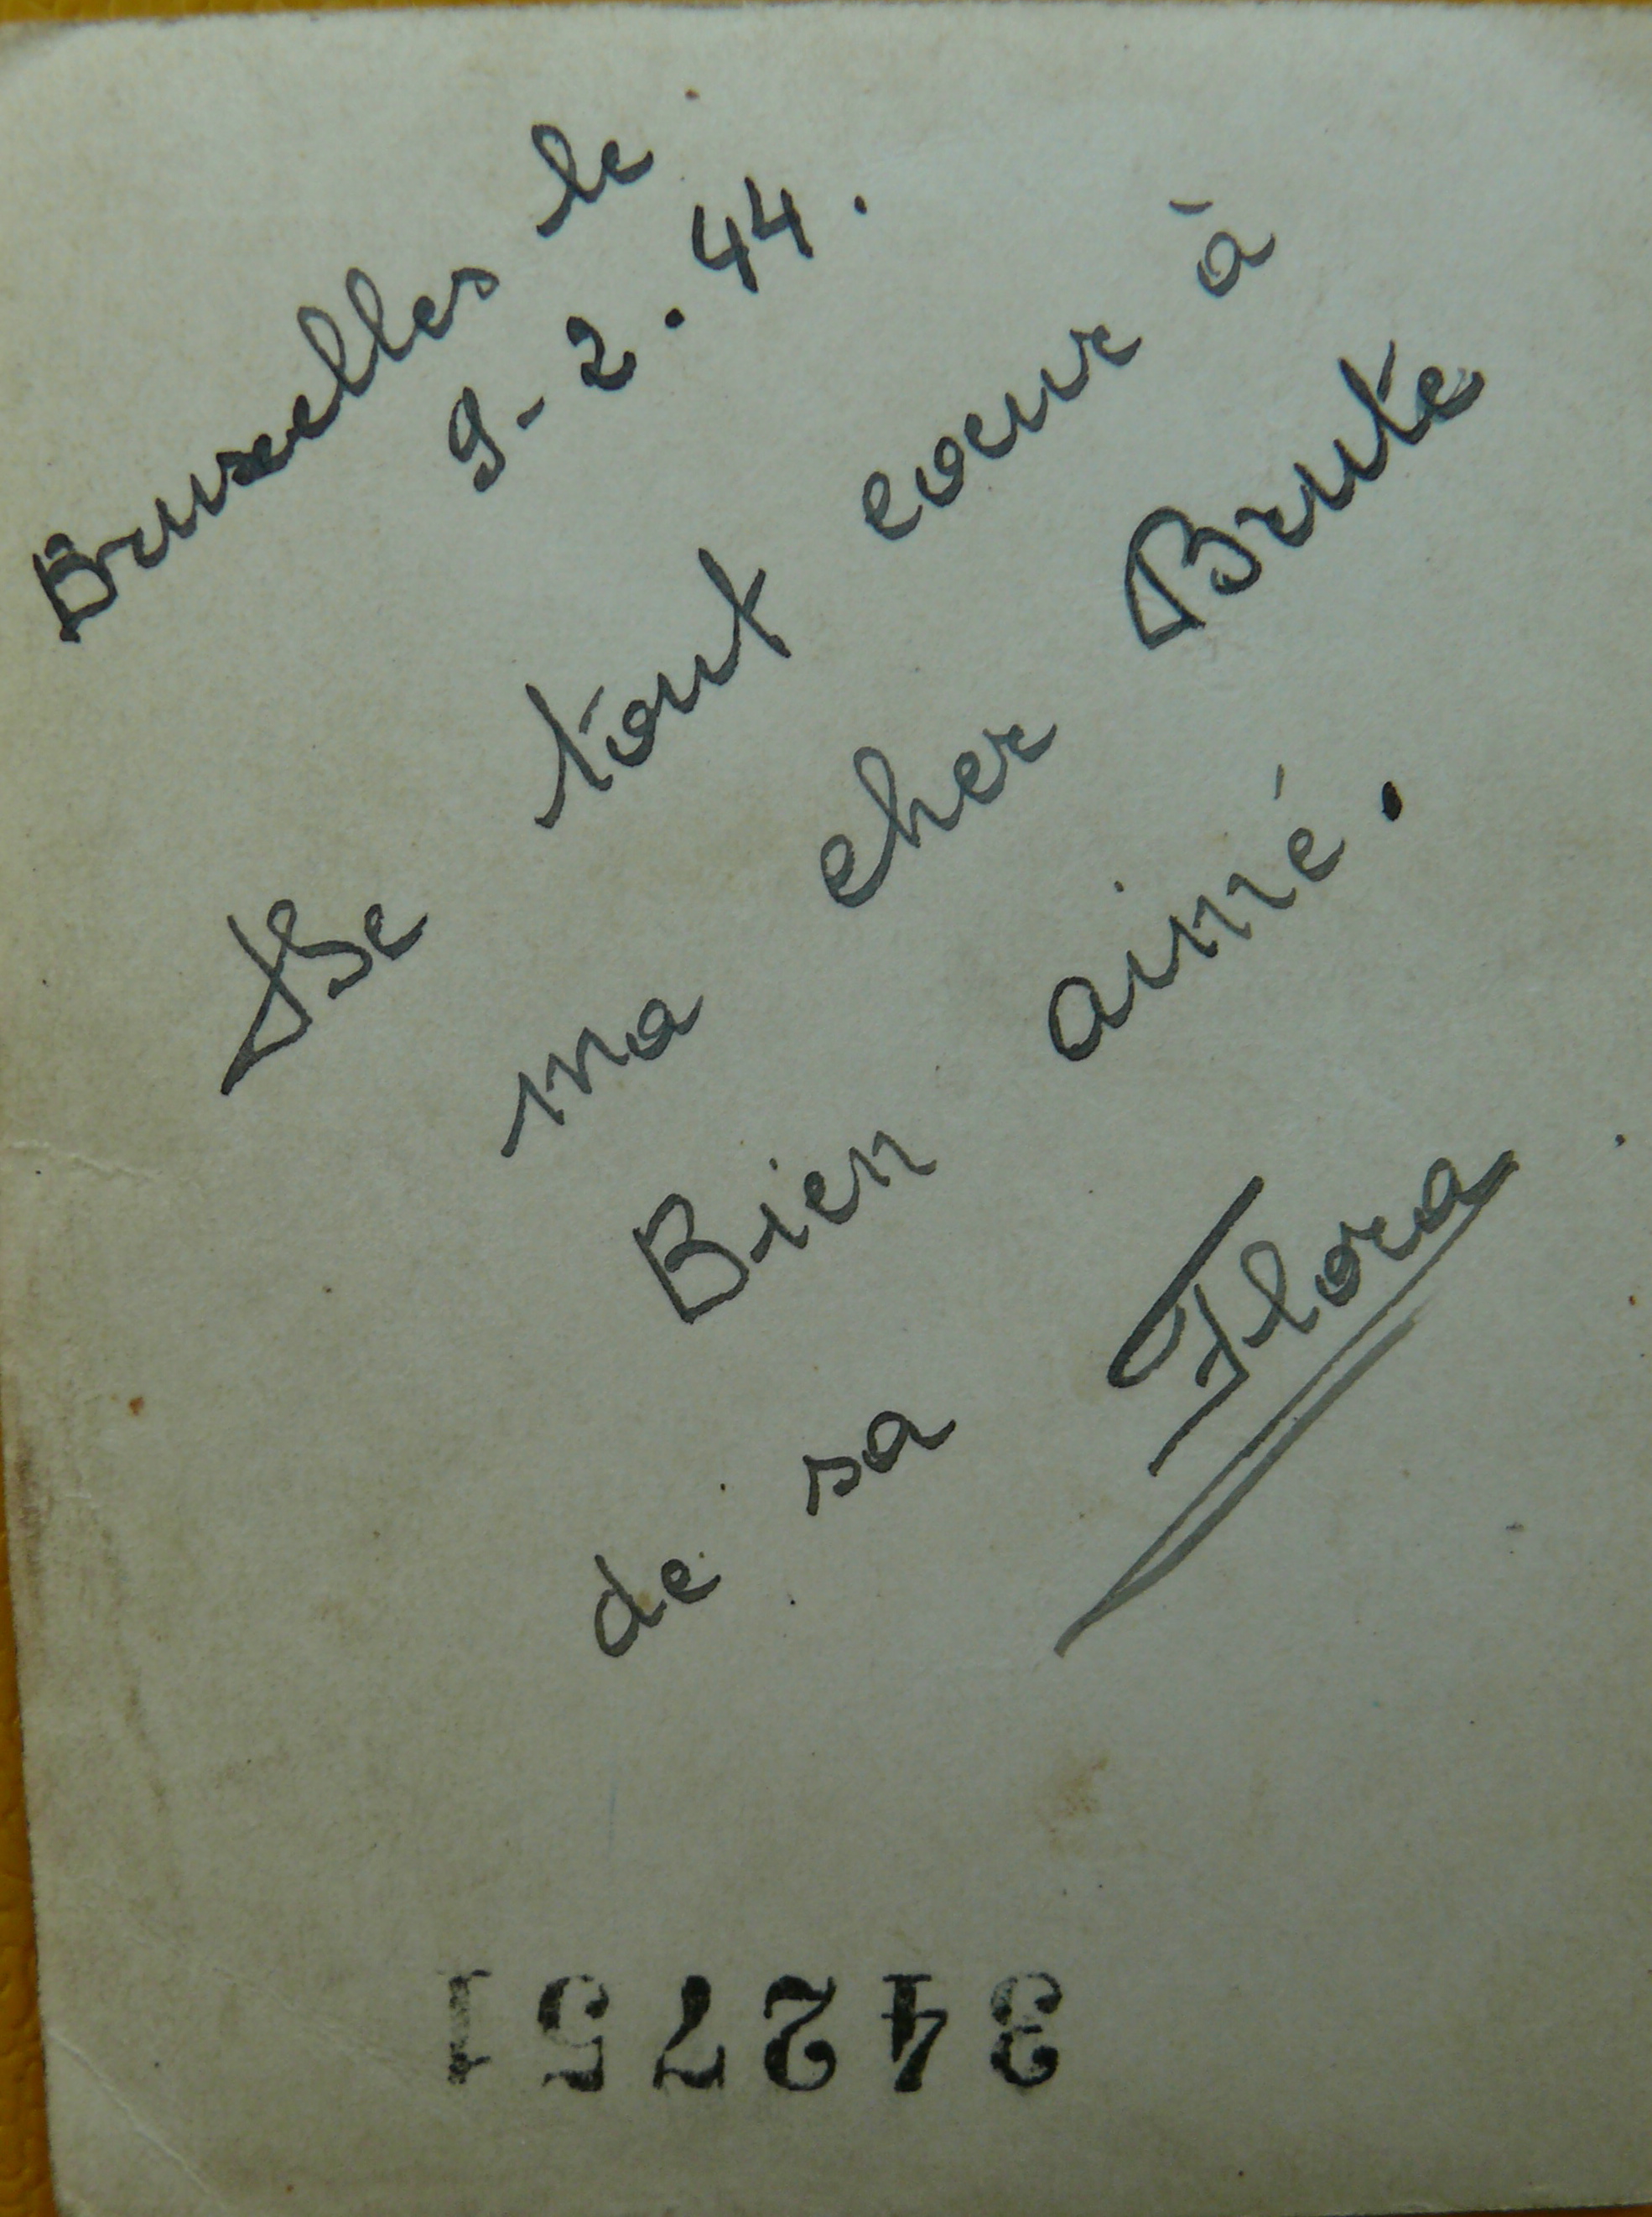 Bruxelles le
9-2.44.
De tout cœur à
ma cher Brute
Bien aimé.
de sa Flora
342751